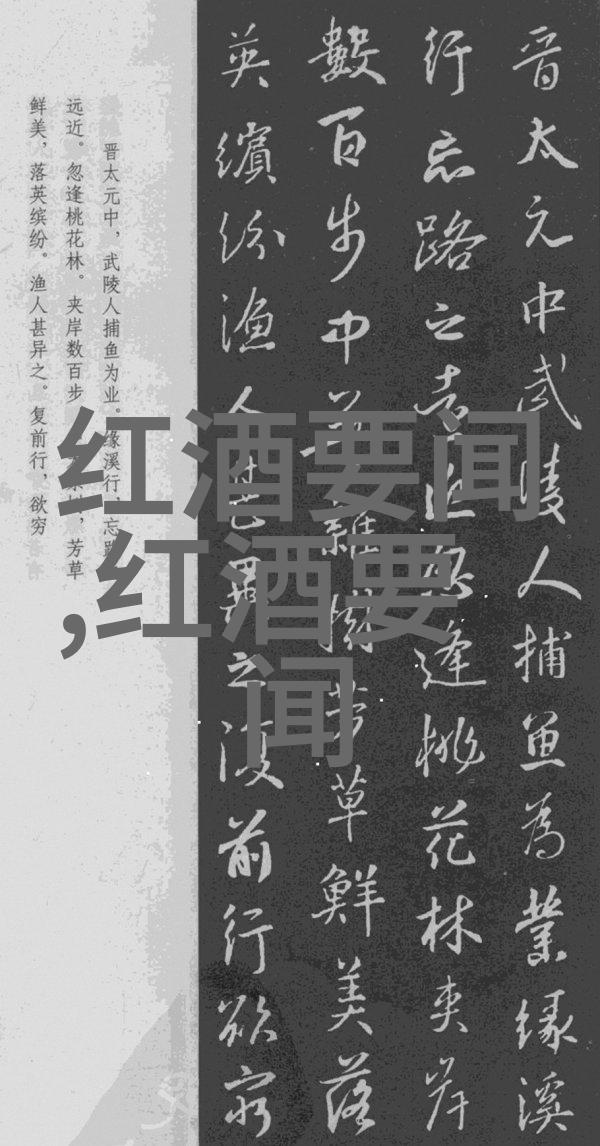 晋太元中武陵人捕魚為業緣溪
行忘路之遠近忽逢桃花林夾岸
數百步中無雜樹芳草鮮美落
英繽紛漁人甚異之復前行欲窮
晋太元中，武陵人捕鱼为业。缘溪行，忘路
远近。忽逢桃花林。夹岸数百步，芳草
鲜美，落英缤纷。渔人甚异之。复前行，欲穷
红酒要闻
,红酒要
闻